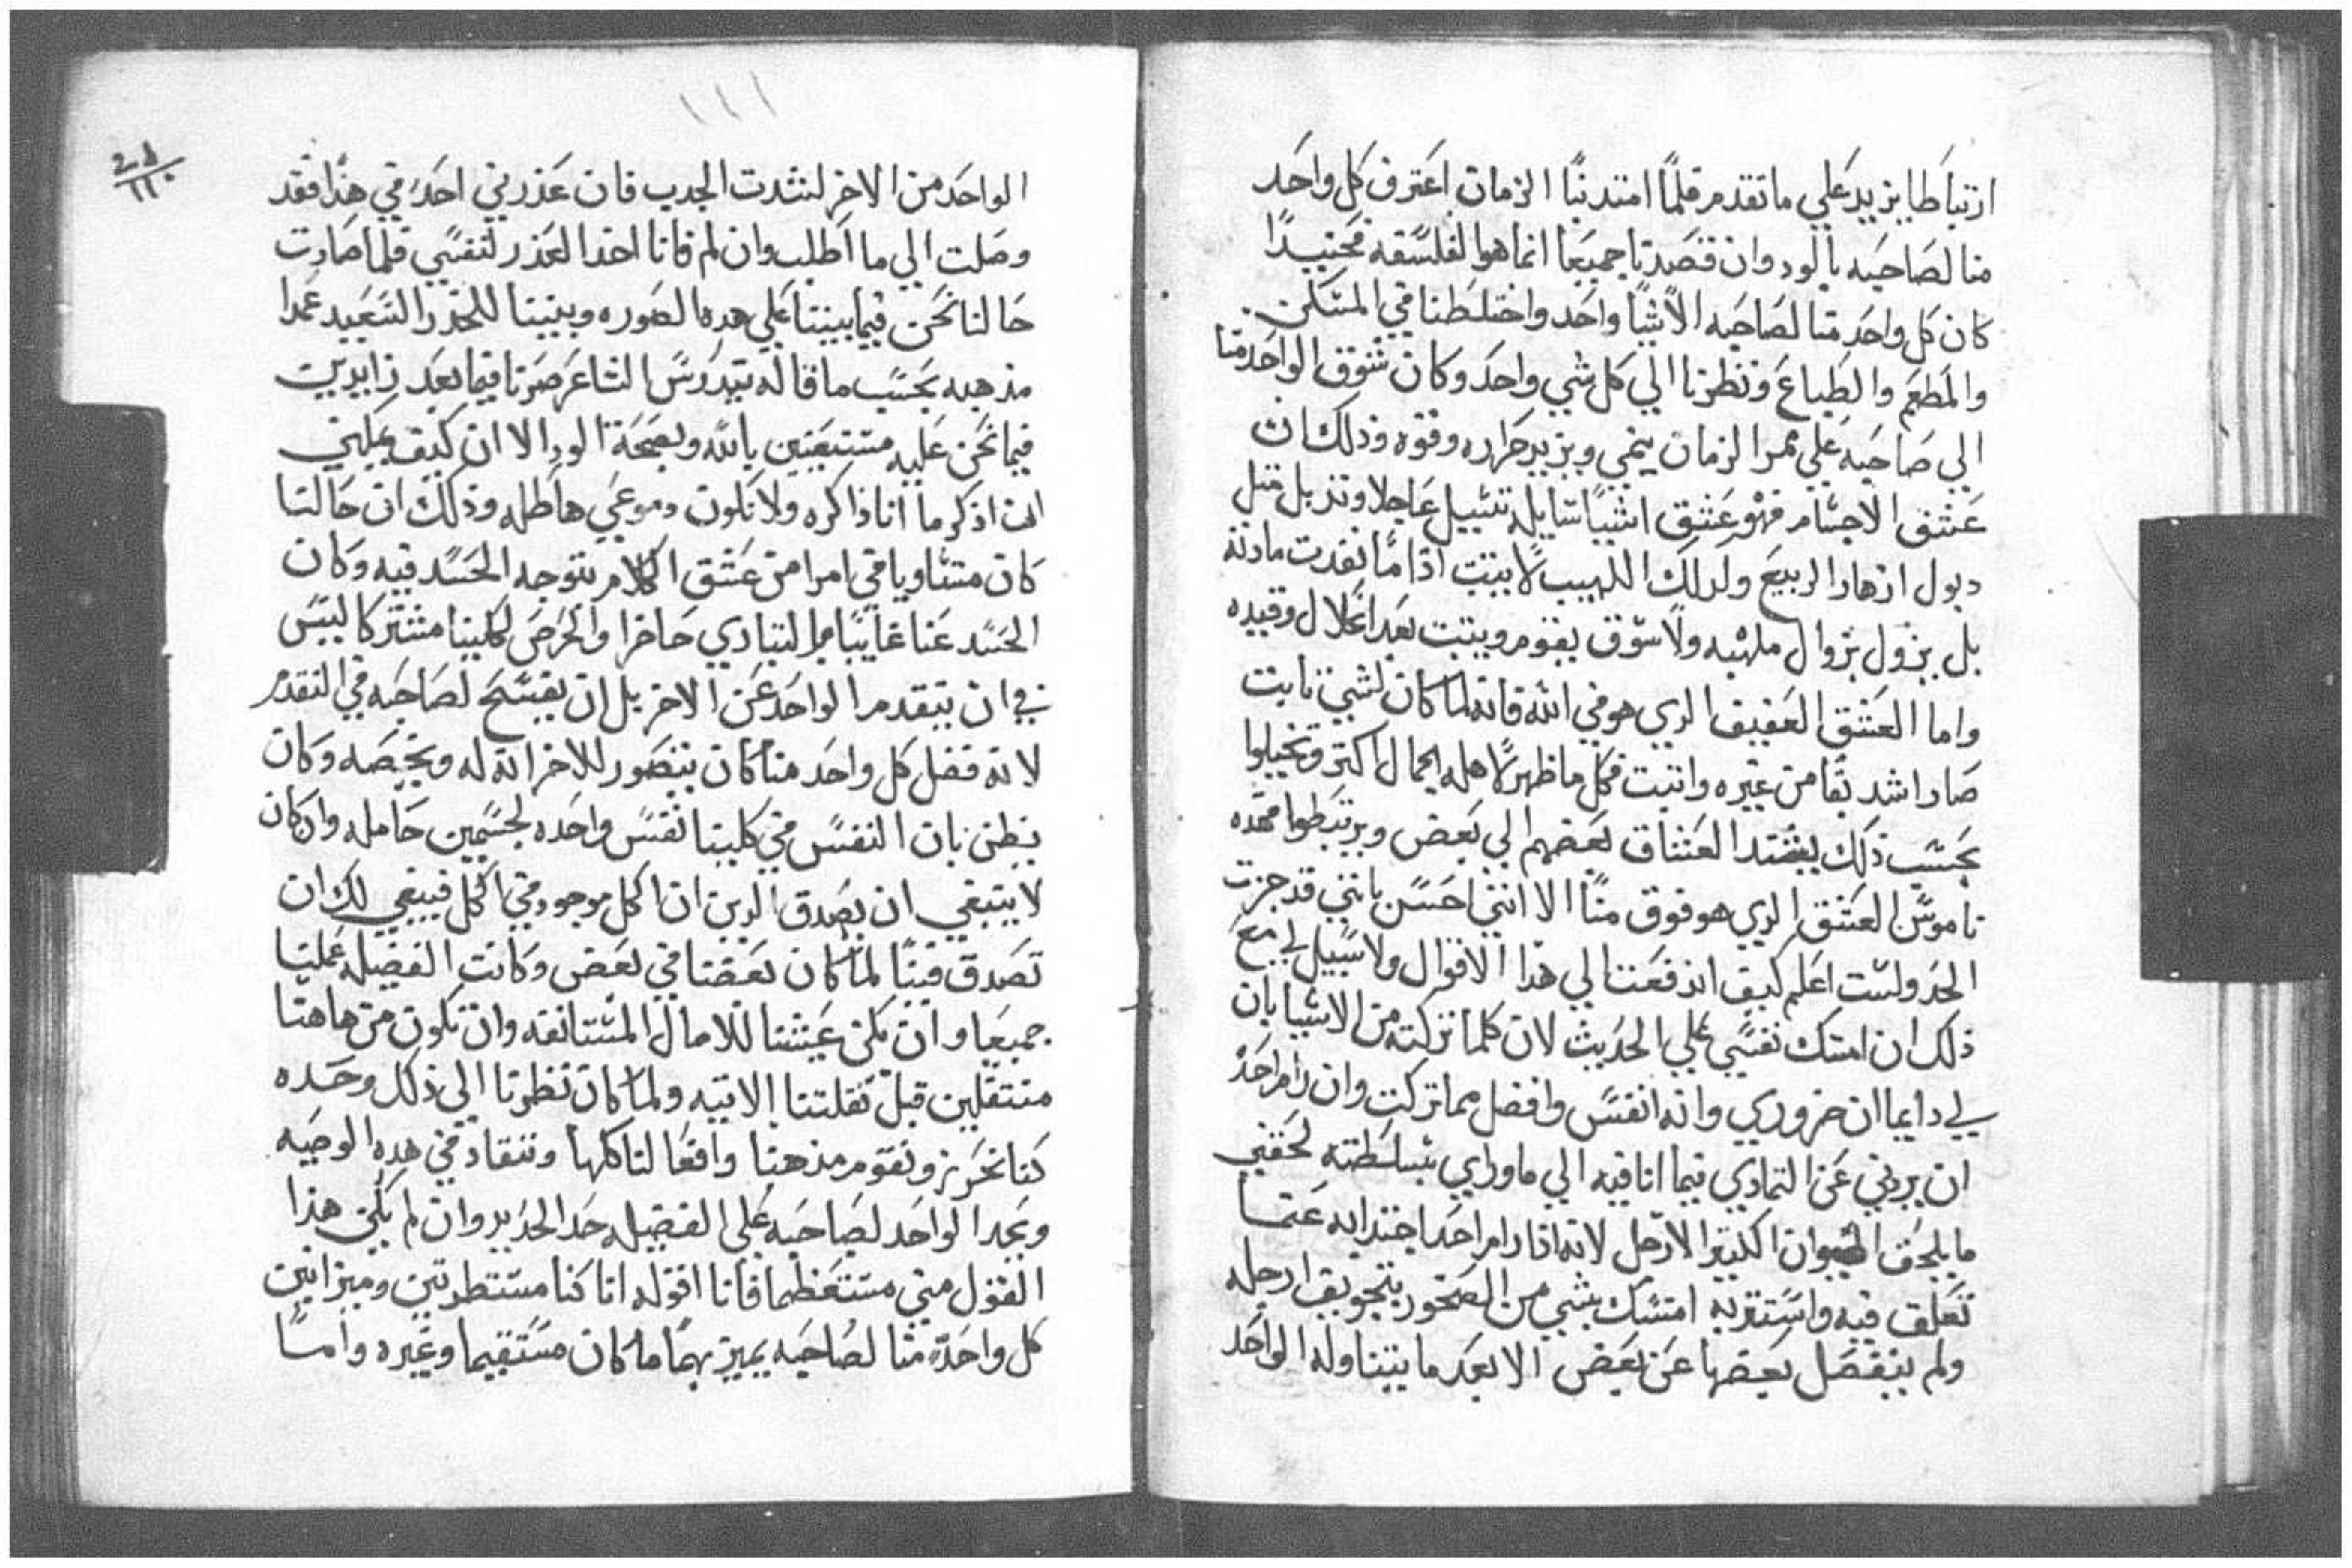 ارتباطا يزيد علي ما تقدم فلما امتد بنا الزمان اعترف كل واحد
منا لصاحبه بالود وان قصدنا جميعا انما هو الفلسفه فحينيدا
كان كل واحد منا لصاحبه الاشيا واحد واختلطنا في المسكن
والمطعم والطباع ونظرنا الي كل شي واحد وكان شوق الواحد منا
الي صاحبه علي ممر الزمان ينمي ويزيد حراره وقوه وذلك ان
عشق الاجسام فهو عشق اشيا سايله تسيل عاجلا وتدبل مثل
دبول ازهار الربيع ولدلك اللهيب لا يثبت اذا ما نفدت مادته
بل يزول بزوال ملهبه ولا شوق يقوم ويثبت بعد انحلال وقيده
واما العشق العفيف الدي هو في الله فانه لما كان لشي ثابت
صار اشد بقا من غيره واثبت فكل ما ظهر لاهله الجمال اكتر وتخيلوا
بحسب ذلك يشتد العشاق بعضهم الي بعض ويرتبطوا فهده
ناموس العشق الدي هو فوق منا الا انني احسن بانني قد جزت
الحد ولست اعلم كيف اندفعت الي هذا الاقوال ولا سبيل لي مع
ذلك ان امسك نفسي علي الحديث لان كلما تركته من الاشيا بان
لي دايما ان ضروري وانه انفس وافضل مما تركت وان رام احد
ان يردني عن التمادي فيما انا فيه الي ما وراي بسلطته لحقني
ما يلحق الحيوان الكثير الارجل لانه اذا رام احد اجتدابه عتما
تعلق فيه واستتر به امتسك بشي من الصخور بتجويف ارجله
ولم ينفصل بعضها عن بعض الا بعد ما يتناوله الواحد
١١١
الواحد من الاخر لشدت الجدب فان عذرني احد في هذا فقد
وصلت الي ما اطلب وان لم فانا اخد العذر لنفسي فلما صارت
حالنا نحن فيما بيننا علي هده الصوره وبنينا للخدر السعيد عمدا
مذهبه بحسب ما قاله بتدروس الشاعر صرنا فيما بعد زايدين
فيما نحن عليه مستعينين بالله وبصحة الود الا ان كيف يمكنني
ان اذكر ما انا ذاكره ولا تكون دموعي هاطله وذلك ان حالنا
كان متساويا في امر من عشق الكلام يتوجه الحسد فيه وكان
الحسد عنا غايبا والتبادي حاضرا والحرص لكلينا مشتركا ليس
في ان يتقدم الواحد عن الاخر بل ان يفسح لصاحبه في التقدم
لانه فضل كل واحد منا كان يتصور للاخر انه له ويخصه وكان
يظن بان النفس في كلينا نفس واحده لجسمين حامله وان كان
لا ينبغي ان يصدق الدين ان الكل موجود في الكل فينبغي لك ان
تصدق فينا لما كان بعضنا في بعض وكانت الفضيله عملنا
جميعا وان تكن عيشتنا للامال المستانفه وان نكون من هاهنا
منتقلين قبل نقلتنا الاتيه ولما كان نظرنا الي ذلك وحده
كنا نحرز ونقوم مذهبنا وافعالنا كلها وننقاد في هده الوصيه
ويجد الواحد لصاحبه علي الفضيله حد الحديد وان لم يكن هذا
القول مني مستعظما فانا اقوله انا كنا مسطرتين وميزانين
كل واحد منا لصاحبه يميز بهما ما كان مستقيما وغيره واما